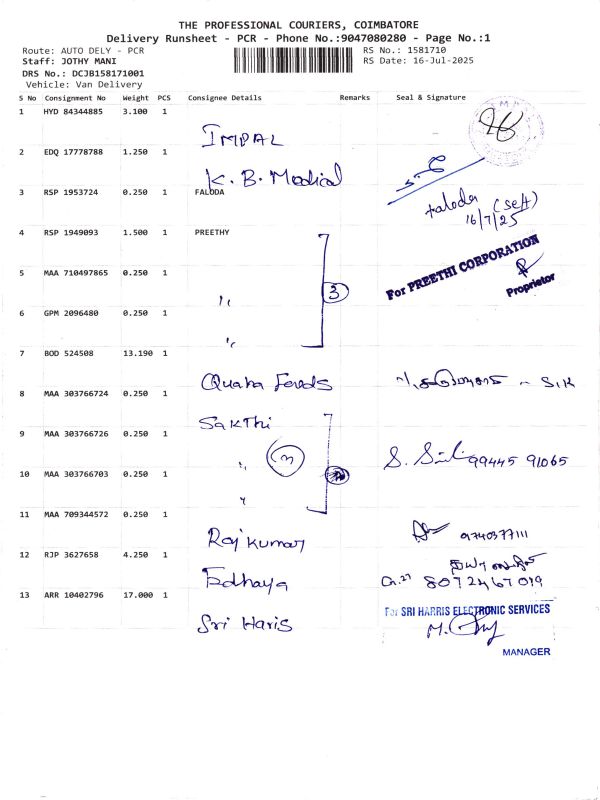 THE PROFESSIONAL COURIERS, COIMBATORE
Delivery Runsheet - PCR - Phone No.:9047080280 - Page No.:1
Route: AUTO DELY - PCR
RS No.: 1581710
Staff: JOTHY MANI
RS Date: 16-Jul-2025
DRS No.: DCJB158171001
Vehicle: Van Delivery
S No Consignment No Weight PCS Consignee Details Remarks Seal & Signature
1 HYD 84344885 3.100 1
IMPAL
2 EDQ 17778788 1.250 1
K. B. Medical
3 RSP 1953724 0.250 1 FALODA
taloda (self)
16/7/25
4 RSP 1949093 1.500 1 PREETHY
3
For PREETHI CORPORATION
Proprietor
5 MAA 710497865 0.250 1
"
6 GPM 2096480 0.250 1
"
7 BOD 524508 13.190 1
Foods
S.K
8 MAA 303766724 0.250 1
Sakthi
9 MAA 303766726 0.250 1
"
S. 99445 91065
10 MAA 303766703 0.250 1
"
11 MAA 709344572 0.250 1
Rajkumar
9740377111
12 RJP 3627658 4.250 1
8072467019
13 ARR 10402796 17.000 1
Sri Haris
For SRI HARRIS ELECTRONIC SERVICES
MANAGER